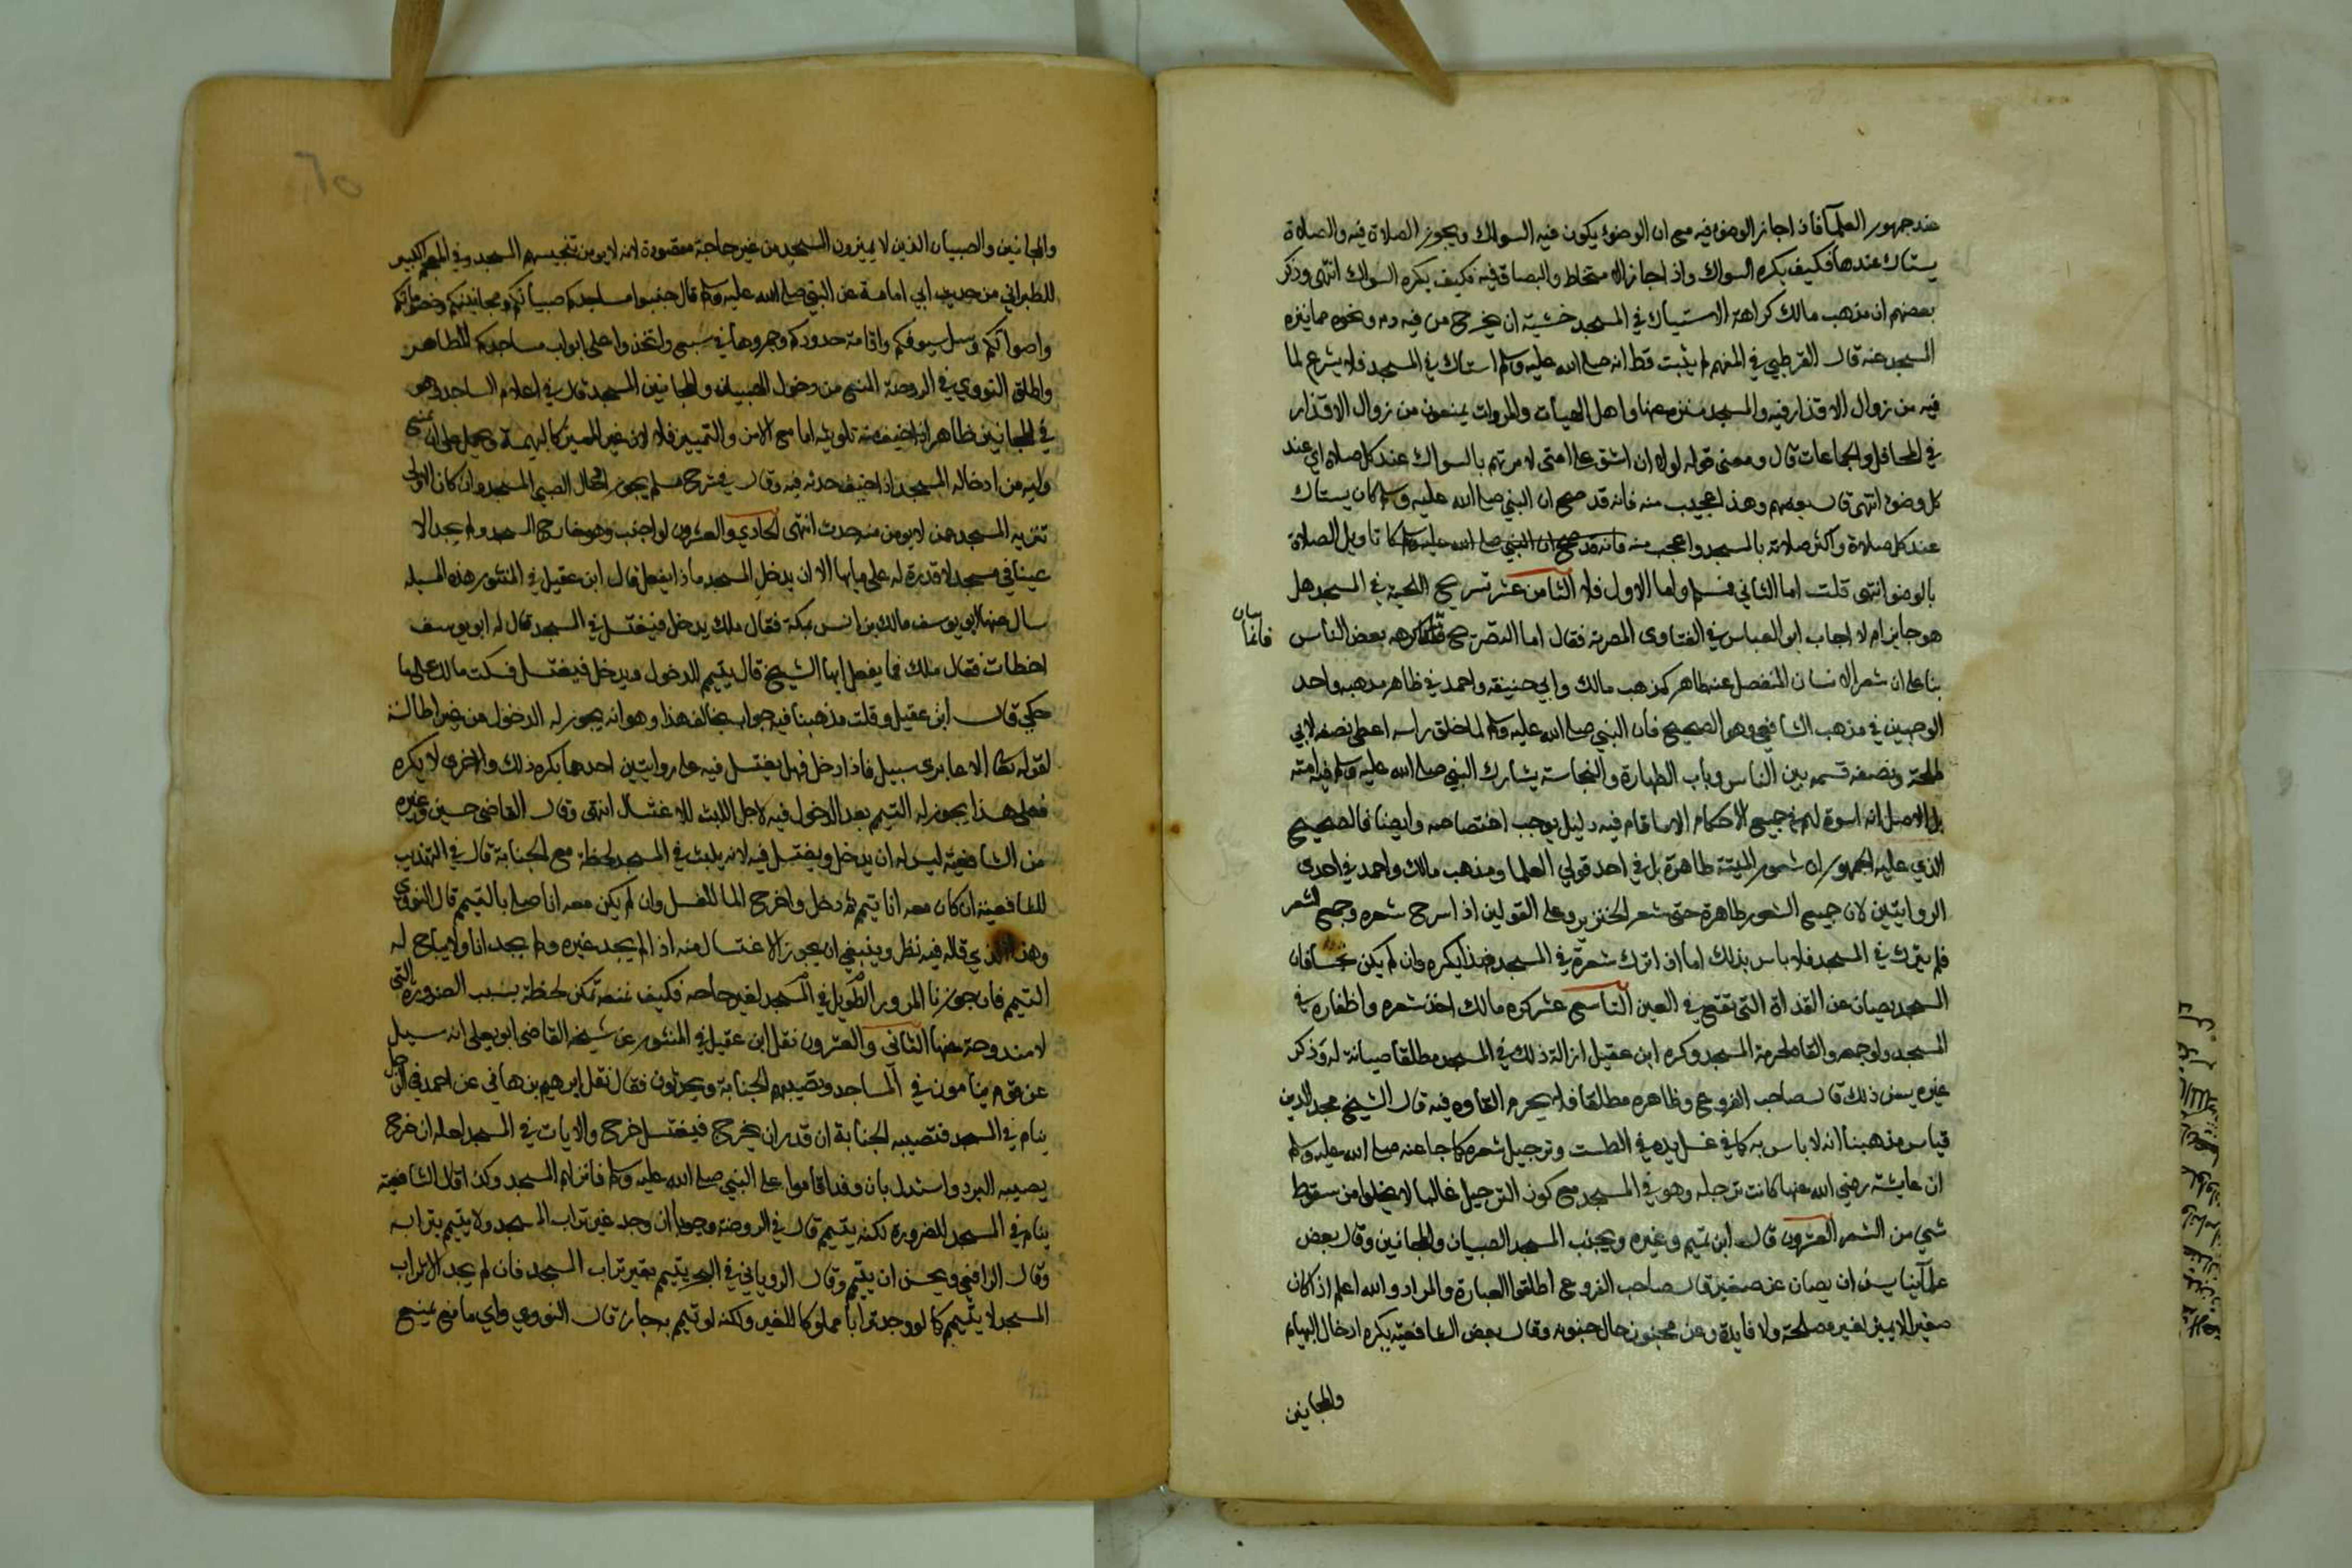 عند جمهور العلمآ فاذا جاز الوضوء فيه مع ان الوضوء يكون فيه السواك ويجوز الصلاة فيه والصلاة
يستاك عندها فكيف يكره السواك واذا جاز الامتخاط والبصاق فيه فكيف يكره السواك انتهى وذكر
بعضهم ان مذهب مالك كراهة الاستياك في المسجد خشية ان يخرج من فيه دم ونحوه مما ينزه
المسجد عنه قال القرطبي في المفهم لم يثبت قط انه صلى الله عليه وسلم استاك في المسجد فلا يشرع لما
فيه من زوال الاقذار فيه والمسجد منزه عنها واهل الهيات والمروات يمنعون من زوال الاقذار
في المحافل والجماعات قال ومعنى قوله لولا ان اشق على امتي لامرتهم بالسواك عند كل صلاة اي عند
كل وضوء انتهى قال بعضهم وهذا عجيب منه فانه قد صح ان النبي صلى الله عليه وسلم كان يستاك
عند كل صلاة واكثر صلاته بالمسجد واعجب منه فانه قد صح ان النبي صلى الله عليه وسلم كا تاويل الصلاة
بالوضو انتهى قلت اما الثاني فمسلم واما الاول فلا الثامن عشر تسريح اللحية في المسجد هل
هو جايز ام لا اجاب ابو العباس في الفتاوى المصرية فقال اما التسريح فانما كرهه بعض الناس
بنا على ان شعر الانسان المنفصل عنه طاهر كمذهب مالك وابي حنيفة واحمد في ظاهر مذهبه واحد
الوجهين في مذهب الشافعي وهو الصحيح فان النبي صلى الله عليه وسلم لما حلق راسه اعطى نصفه لابي
طلحة ونصفه قسمه بين الناس وباب الطهارة والنجاسة يشارك النبي صلى الله عليه وسلم فيه امته
بل الاصل انه اسوة لهم في جميع الاحكام الا ما قام فيه دليل يوجب اختصاصه وايضا فالصحيح
الذي عليه الجمهور ان شعور الميتة طاهرة بل في احد قولي العلما ومذهب مالك واحمد في احدى
الروايتين لان جميع الشعور طاهرة حتى شعر الخنزير وعلى القولين اذا سرح شعره وجمع الشعر
فلم يترك في المسجد فلا باس بذلك اما اذا ترك شعره في المسجد فهذا يكره وان لم يكن نجسا فان
المسجد يصان عن القذاة التي تقع في العين التاسع عشر كره مالك اخذ شعره واظفاره في
المسجد ولو جمعه والقاه لحرمة المسجد وكره ابن عقيل ازالة ذلك في المسجد مطلقا صيانة له وذكر
غيره يسن ذلك قال صاحب الفروع وظاهره مطلقا فلا يحرم القاوه فيه قال الشيخ مجد الدين
قياس مذهبنا انه لا باس به كما في غسل يده في الطست وترجيل شعره كما جا عنه صلى الله عليه وسلم
ان عايشة رضي الله عنها كانت ترجله وهو في المسجد مع كون الترجيل غالبا لا يخلوا من سقوط
شي من الشعر العشرون قال ابن تميم وغيره ويجنب المسجد الصبيان والمجانين وقال بعض
علمآينا يسن ان يصان عن صغير قال صاحب الفروع اطلقوا العبارة والمراد والله اعلم اذا كان
صغير لا يميز لغير مصلحة ولا فايدة وعن مجنون حال جنونه وقال بعض الشافعية يكره ادخال البهايم
والمجانين
والمجانين والصبيان الذين لا يميزون المسجد من غير حاجة مقصودة لانه لا يومن تنجيسهم المسجد وفي المعجم الكبير
للطبراني من حديث ابي امامة عن النبي صلى الله عليه وسلم قال جنبوا مساجدكم صبيانكم ومجانينكم وخصوماتكم
واصواتكم وسل سيوفكم واقامة حدودكم وجمروها في سبع واتخذوا على ابواب مساجدكم المطاهر
واطلق النووي في الروضة المنع من دخول الصبيان والمجانين المسجد قال في اعلام الساجد وهو
في المجانين ظاهر ان خيف منه تلويثه اما مع الامن والتمييز فلا لان غير المميز كالبهيمة ويحمل على ان يمنع
وليه من ادخاله المسجد اذا خيف حدثه فيه وقال في شرح مسلم يجوز ادخال الصبي المسجد وان كان الاولى
تنزيه المسجد عمن لا يومن منه حدث انتهى الحادي والعشرون لو اجنب وهو خارج المسجد ولم يجد الا
عينا في مسجد لا قدرة له على مايها الا ان يدخل المسجد ماذا يفعل قال ابن عقيل في المنثور هذه المسيله
سال عنها ابو يوسف مالك بن انس بمكة فقال مالك يدخل فيغتسل في المسجد قال له ابو يوسف
اخطات فقال مالك فما يفعل ايها الشيخ قال يتيمم للدخول ويدخل فيغتسل فسكت مالك على ما
حكي قال ابن عقيل وقلت مذهبنا فيه جواب يخالف هذا وهو انه يجوز له الدخول من غير اطالة
لقوله تعالى الا عابري سبيل فاذا دخل فهل يغتسل فيه على روايتين احدهما يكره ذلك والاخرى لا يكره
فعلى هذا يجوز له التيمم بعد الدخول فيه لاجل اللبث للاغتسال انتهى وقال القاضي حسين وغيره
من الشافعية ليس له ان يدخل ويغتسل فيه لانه يلبث في المسجد لحظة مع الجنابة قال في التهذيب
للشافعية ان كان معه انا تيمم ثم دخل واخرج الما للغسل وان لم يكن معه انا صلى بالتيمم قال النووي
وهذا الذي قاله فيه نظر وينبغي ان يجوز الاغتسال منه اذا لم يجد غيره ولم يجد انا ولا يباح له
التيمم فان جوزنا المرور الطويل في المسجد لغير حاجه فكيف نمنعه مكث لحظة بسبب الضرورة التي
لا مندوحة عنها الثاني والعشرون نقل ابن عقيل في المنثور عن شيخه القاضي ابو يعلى انه سيل
عن قوم ينامون في المساجد وتصيبهم الجنابة ويحرثون فقال نقل ابرهيم بن هاني عن احمد في الرجل
ينام في المسجد فتصيبه الجنابة ان قدر ان يخرج فيغتسل خرج والا بات في المسجد لعله ان خرج
يصيبه البرد واستدل بان وفدا قاموا على النبي صلى الله عليه وسلم فانزلهم المسجد وكذا قال الشافعية
ينام في المسجد للضرورة لكنه يتيمم قال في الروضة وجوبا ان وجد غير تراب المسجد ولا يتيمم بترابه
وقال الرافعي ويحسن ان يتيمم وقال الروياني في البحر يتيمم بغير تراب المسجد فان لم يجد الا تراب
المسجد لا يتيمم كما لو وجد ترابا مملوكا للغير ولكنه لو تيمم به جاز قال النووي واي مانع يمنع